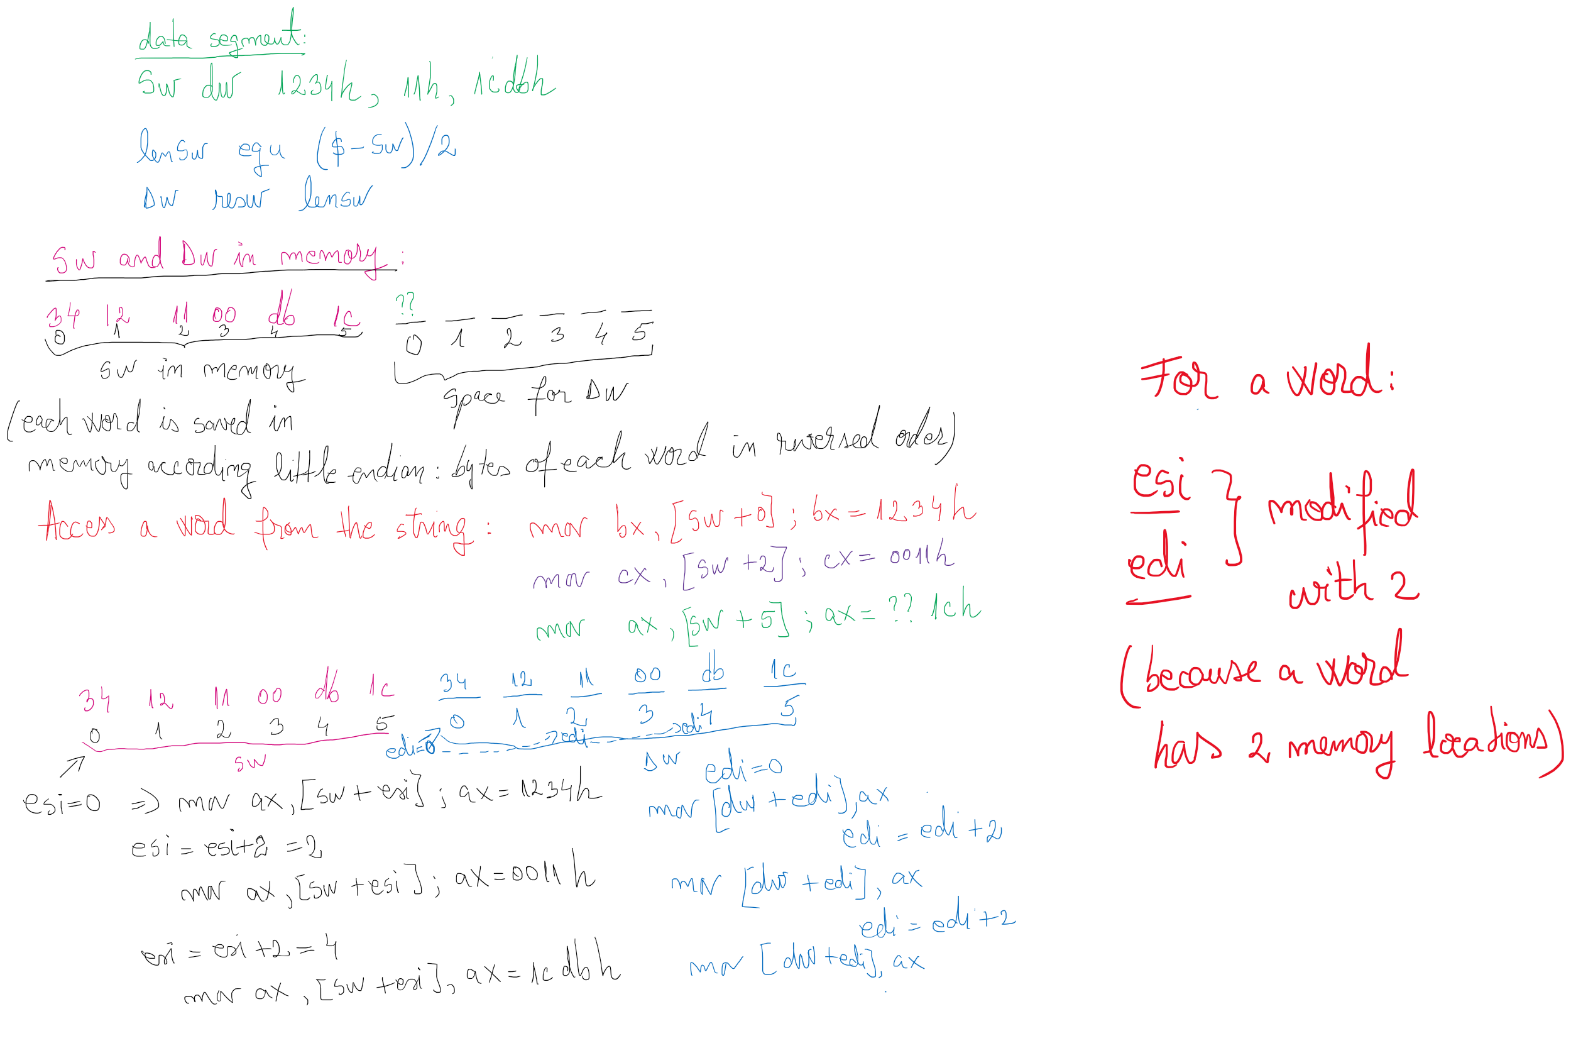 data segment:
Sw dw 1234h, 11h, 1cdbh
lenSw equ ($-Sw)/2
Dw resw lensw
Sw and Dw in memory:
34 12 11 00 db 1c ??
0 1 2 3 4 5 0 1 2 3 4 5
Sw in memory
space for DW
(each word is saved in
memory according little endian: bytes of each word in reversed order)
Access a word from the string: mov bx, [sw+0]; bx=1234h
mov cx, [sw+2]; cx=0011h
mov ax, [sw+5]; ax=?? 1ch
34 12 11 00 db 1c 34 12 11 00 db 1c
0 1 2 3 4 5 0 1 2 3 4 5
edi=0 →edi →edi
SW
DW
esi=0 => mov ax, [sw+esi]; ax=1234h
esi = esi+2 = 2
mov ax, [sw+esi]; ax=0011h
esi = esi+2 = 4
mov ax, [sw+esi], ax=1cdbh
edi=0
mov [dw+edi], ax
edi = edi+2
mov [dw+edi], ax
edi = edi+2
mov [dw+edi], ax
For a word:
esi
edi } modified
with 2
(because a word
has 2 memory locations)